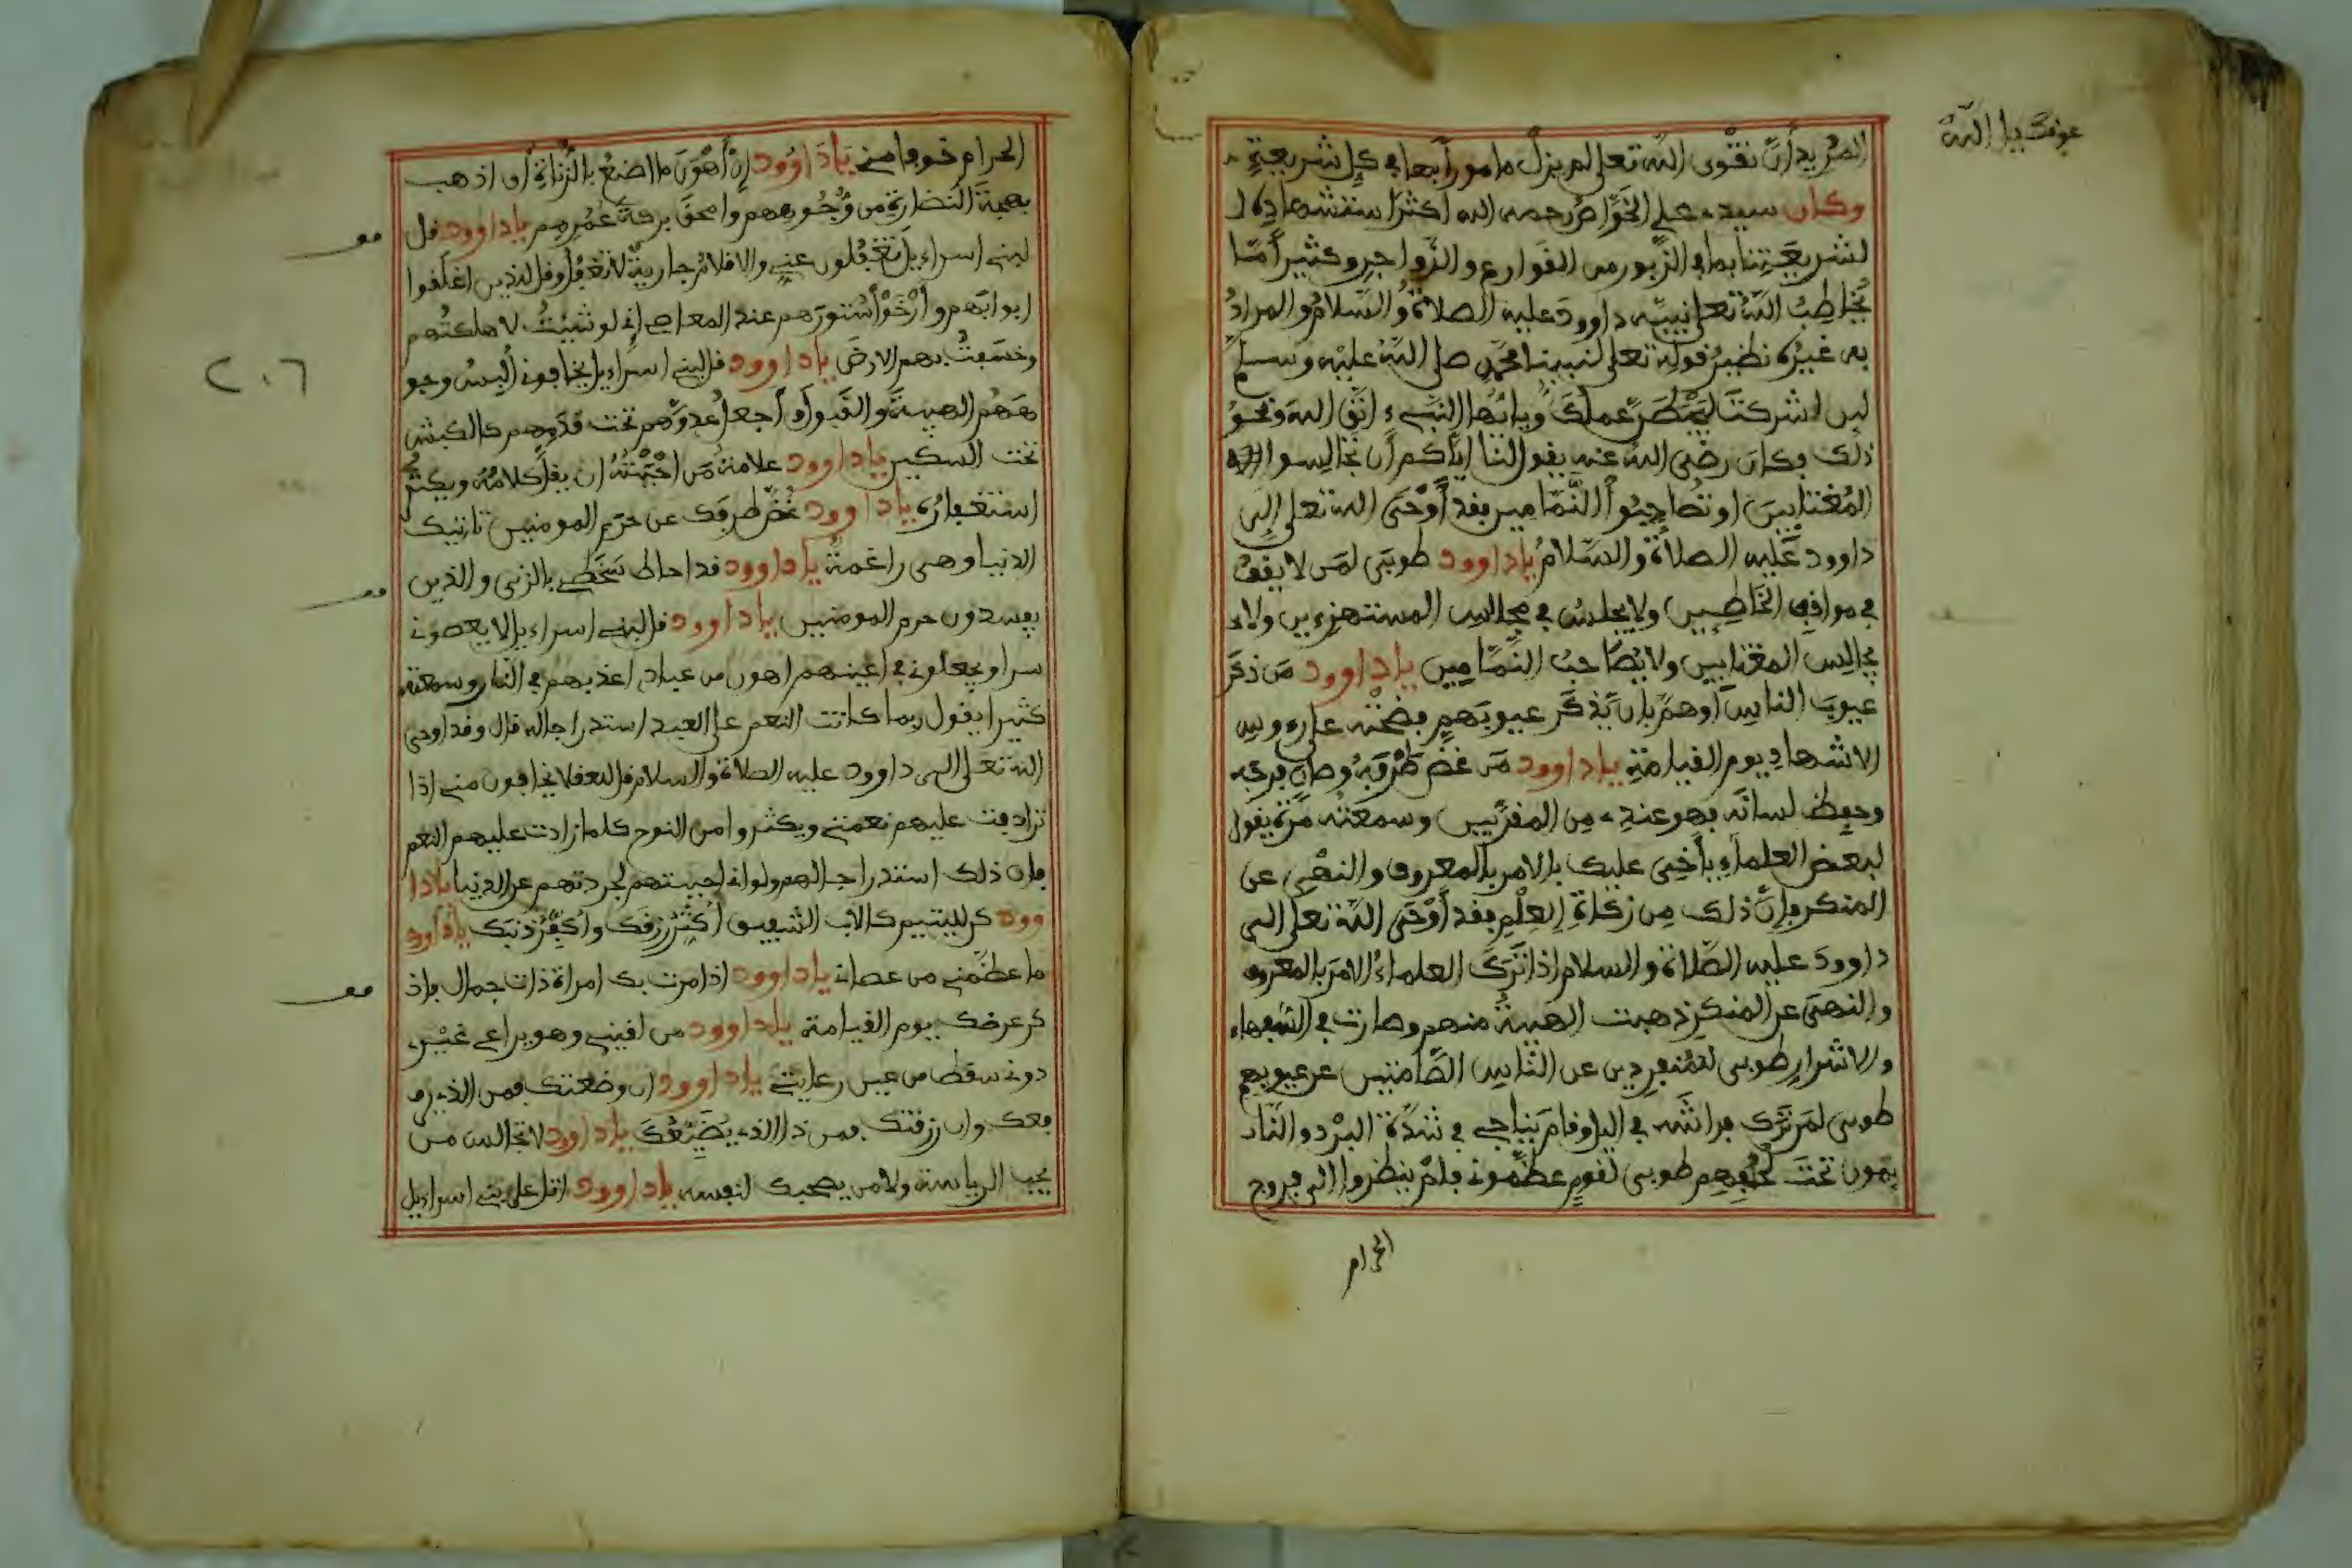 المريد أن تقوى الله تعلى لم يزل مامورا بها في كل شريعة
وكان سيدي علي الخواص رحمه الله اكثر استشهاده ل
لشريعتنا بما في الزبور من القوارع والزواجر وكثيرا مّا
يُخاطِبُ الله تعلى نبيه داوود عليه الصلاة والسلام والمراد
به غيره نظير قوله تعلى لنبينا محمد صلى الله عليه وسلم
لين اشركت ليحبطن عملك ويا ايها النبيء اتق الله ونحو
ذلك وكان رضي الله عنه يقول لنا اياكم أن تجالسوا
المغتابين او تصاحبوا النمّامين فقد أوْحَى الله تعلى إلى
داوود عليه الصلاة والسلام يا داوود طوبى لمن لا يقف
في مواقف الخاطين ولا يجلس في مجالس المستهزءين ولاء
مجالس المغتابين ولا يُصَاحب النمّامين يا داوود مَن ذكرَ
عيوبَ الناس أو همّ بان يَذكر عيوبَهم فضحْته على رءوس
الاشهاد يوم القيامة يا داوود مَن غض طرْفه وصان فرجه
وحفظ لسانه فهو عندي من المقربين وسمعته مرة يقول
لبعض العلماء يا أخي عليك بالامر بالمعروف والنهْي عن
المنكر فإنّ ذلك مِن زكاةِ العِلْم فقد أوْحَى الله تعلى الى
داوود عليه الصّلاة والسلام اذا تَرَك العلماءُ الامرَ بالمعروف
والنهي عن المنكر ذهبت الهيبةُ منهم وصارت في السّفهاء
والاشرار طوبى للمنفردين عن الناس الصّامتين عن عيوبهم
طوبى لمن ترك فراشَه في اليل وقام يناجي في شدّة البرْد والنّاس
يمون تحت لحُفِهِم طوبى لقومٍ عظّموني فلمْ ينظروا الى فروج
الحرام
الحرام خوفا مني يا داوود إنّ أهْوَنَ ما اصنَعُ بالزُّناةِ أن اذهب
بهجةَ النضارة من وُجُوههم وامحقَ بركةَ عُمُرِهم يا داوود قل
لبني اسراءيل تغفلون عني والاقلام جارية لا تغفل وقل للذين اغلقوا
ابوابَهم وأرْخَوْا سُتورَهم عند المعاصي إني لو شئتُ لاهلكتُهم
وخسفتُ بهم الارضَ يا داوود قل لبني اسراءيل يخافوني أُلبِسُ وجو
هَهُم الهيبةَ والقَبولَ وأجعل عدوّهم تحت قدمهم كالكبش
تحت السكين يا داوود علامة مَن احْبَبْتُهُ ان يقلّ كلامُهُ ويكثر
استغفارُه يا داوود غُضّ طرفك عن حَرَم المومنين تاتيك
الدنيا وهي راغمة يا داوود قد احاط سَخَطي بالزنى والذين
يفسدون حرم المومنين يا داوود قل لبني اسراءيل لا يعصوني
سرا ويجعلوني في اعينهم اهون من عبادي اعذبهم في النار وسمعته
كثيرا يقول ربما كانت النعم على العبد استدراجا له قال وقد اوحى
الله تعلى الى داوود عليه الصلاة والسلام قل للعقلا يخافون مني اذا
ترادفت عليهم نعمتي ويكثروا من النوح كلما زادت عليهم النعم
فان ذلك استدراجا لهم ولو اني احببتهم لجردتهم عن الدنيا يا دا
وود كن لليتيم كالاب الشفيق أُكثّر رزقك واُكَفِّرْ ذنبك يا داود
ما عظّمني من عصاني يا داوود اذا مرت بك امراة ذات جمال فاذ
كر عرضك يوم القيامة يا داوود من لقيني وهو يراعي غيْري
دوني سقط من عين رعايتي يا داوود ان وضعتك فمن الذي ير
فعك وان رزقتك فمن ذا الذي يُضَيّعُكَ يا داوود لا تجالس من
يحب الرياسة ولا من يصحبك لنفسه يا داوود اتل على بني اسراءيل
٢٠٦